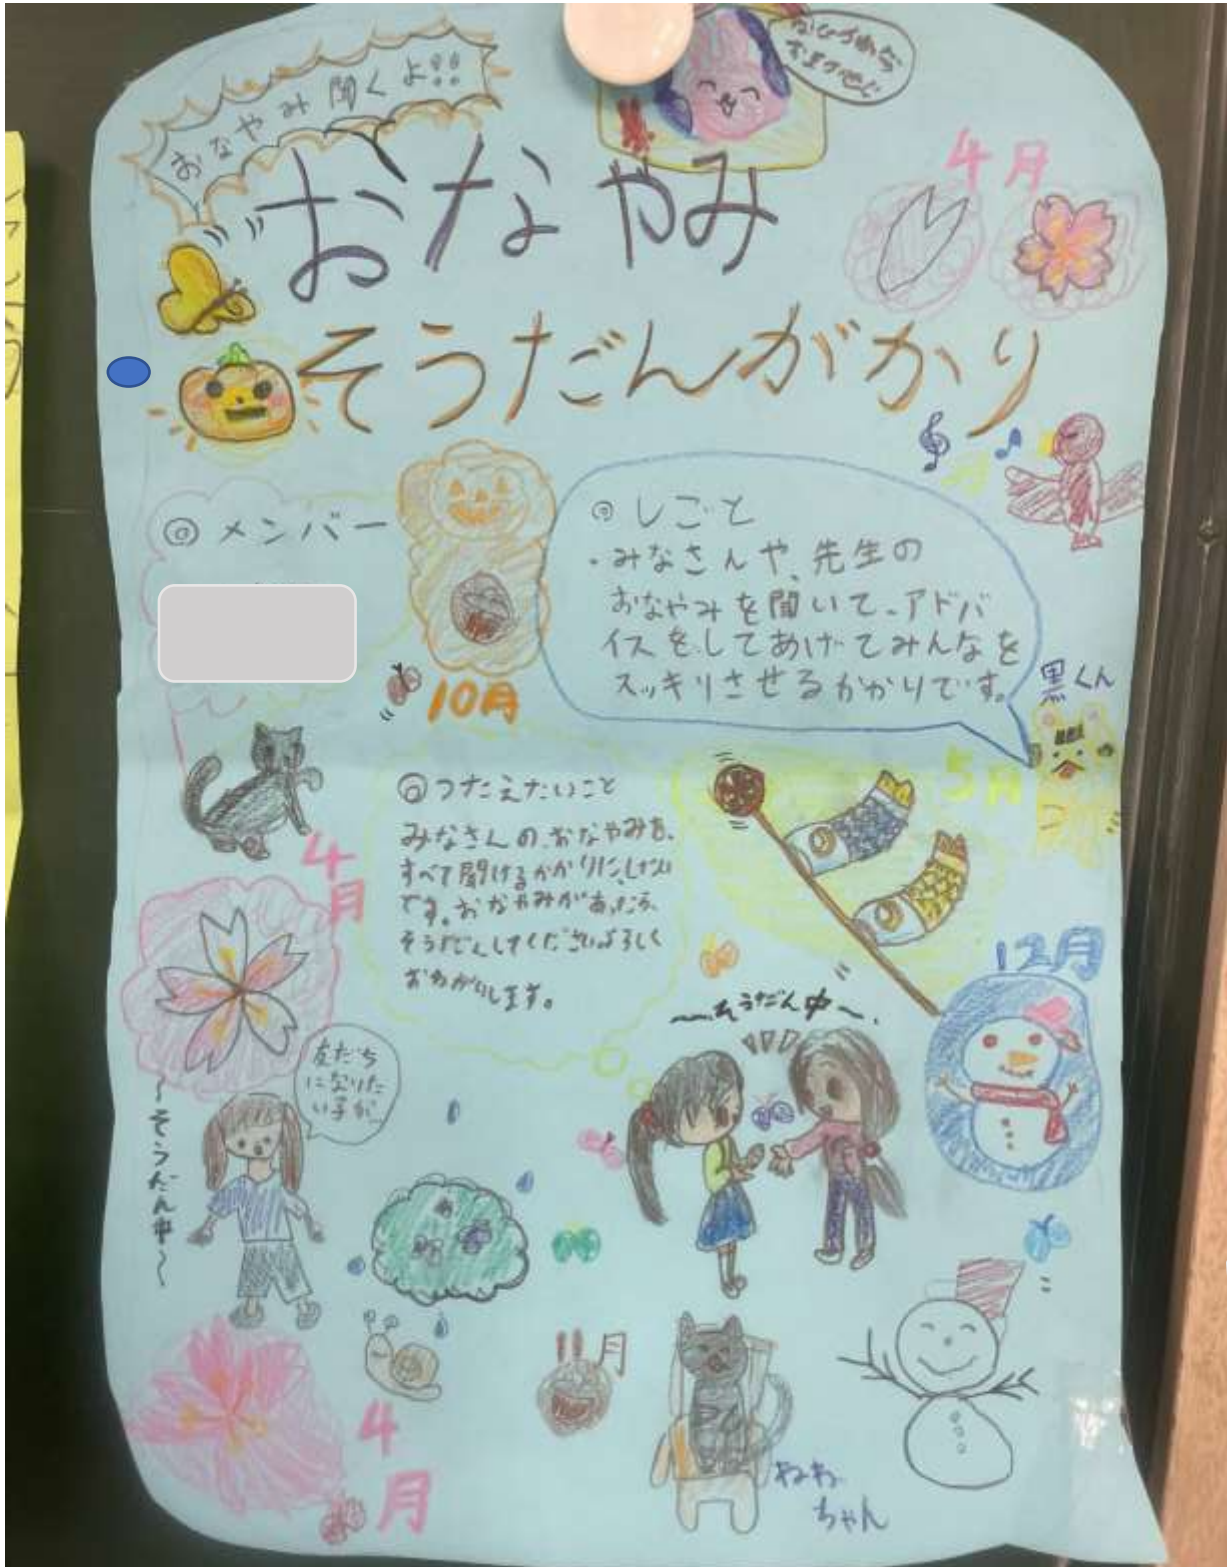 おなやみ聞くよ!!
おなやみ
そうだんがかり
4月
◎メンバー
10月
◎しごと
・みなさんや、先生の
おなやみを聞いて、アドバ
イスをしてあげてみんなを
スッキリさせるかかりです。
黒くん
5月
◎つたえたいこと
みなさんの、おなやみを、
すべて聞けるかかりに、したい
です。おなやみがあったら、
そうだんしてくださいよろしく
おねがいします。
4月
12月
〜そうだん中〜
友だち
になりた
い子が
〜そうだん中〜
月
4月
ねね
ちゃん